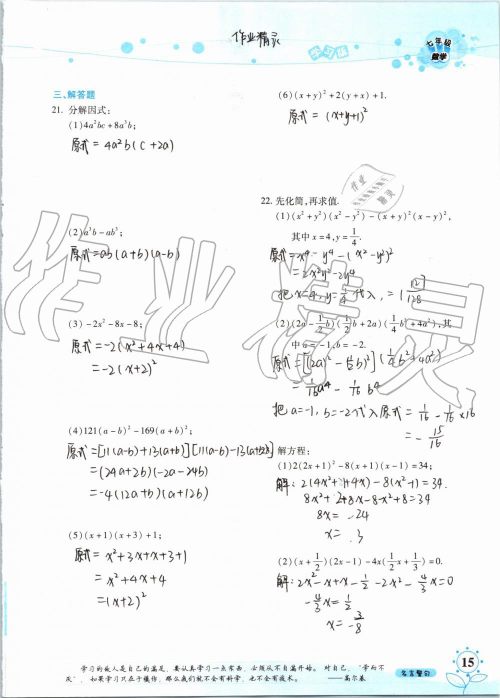 作业精灵
七年级
数学
三、解答题
21. 分解因式:
(1)4a²bc+8a³b;
原式 = 4a²b(c+2a)
(2)a³b-ab³;
原式=ab(a+b)(a-b)
(3)-2x²-8x-8;
原式=-2(x²+4x+4)
=-2(x+2)²
(4)121(a-b)²-169(a+b)²;
原式=[11(a-b)+13(a+b)][11(a-b)-13(a+b)]
=(24a+2b)(-2a-24b)
=-4(12a+b)(a+12b)
(5)(x+1)(x+3)+1;
原式= x²+3x+x+3+1
= x²+4x+4
=(x+2)²
(6)(x+y)²+2(y+x)+1.
原式 = (x+y+1)²
22. 先化简,再求值.
(1)(x²+y²)(x²-y²)-(x+y)²(x-y)²,
其中x=4,y=1/4.
原式=x⁴-y⁴-(x²-y²)²
=2x²y²-2y⁴
把x=4, y=1/4代入,=1 127/128
(2)(2a-1/2b)(1/2b+2a)(1/4b²+4a²),其
中a=-1,b=-2.
原式=[(2a)²-(1/2b)²](1/4b²+4a²)
=1/16a⁴-1/16b⁴
把a=-1,b=-2代入原式=1/16-1/16×16
=-15/16
解方程:
(1)2(2x+1)²-8(x+1)(x-1)=34;
解: 2(4x²+1+4x)-8(x²-1)=34.
8x²+2+8x-8x²+8=34
8x= 24
x= 3
(2)(x+1/2)(2x-1)-4x(1/2x+1/3)=0.
解: 2x²-x+x-1/2-2x²-4/3x=0
-4/3x=1/2
x=-3/8
学习的敌人是自己的满足,要认真学习一点东西,必须从不自满开始。对自己,“学而不
如果学习只在于模仿,那么我们就不会有科学,也不会有技术。 ——高尔基
名言警句
15
作业精灵